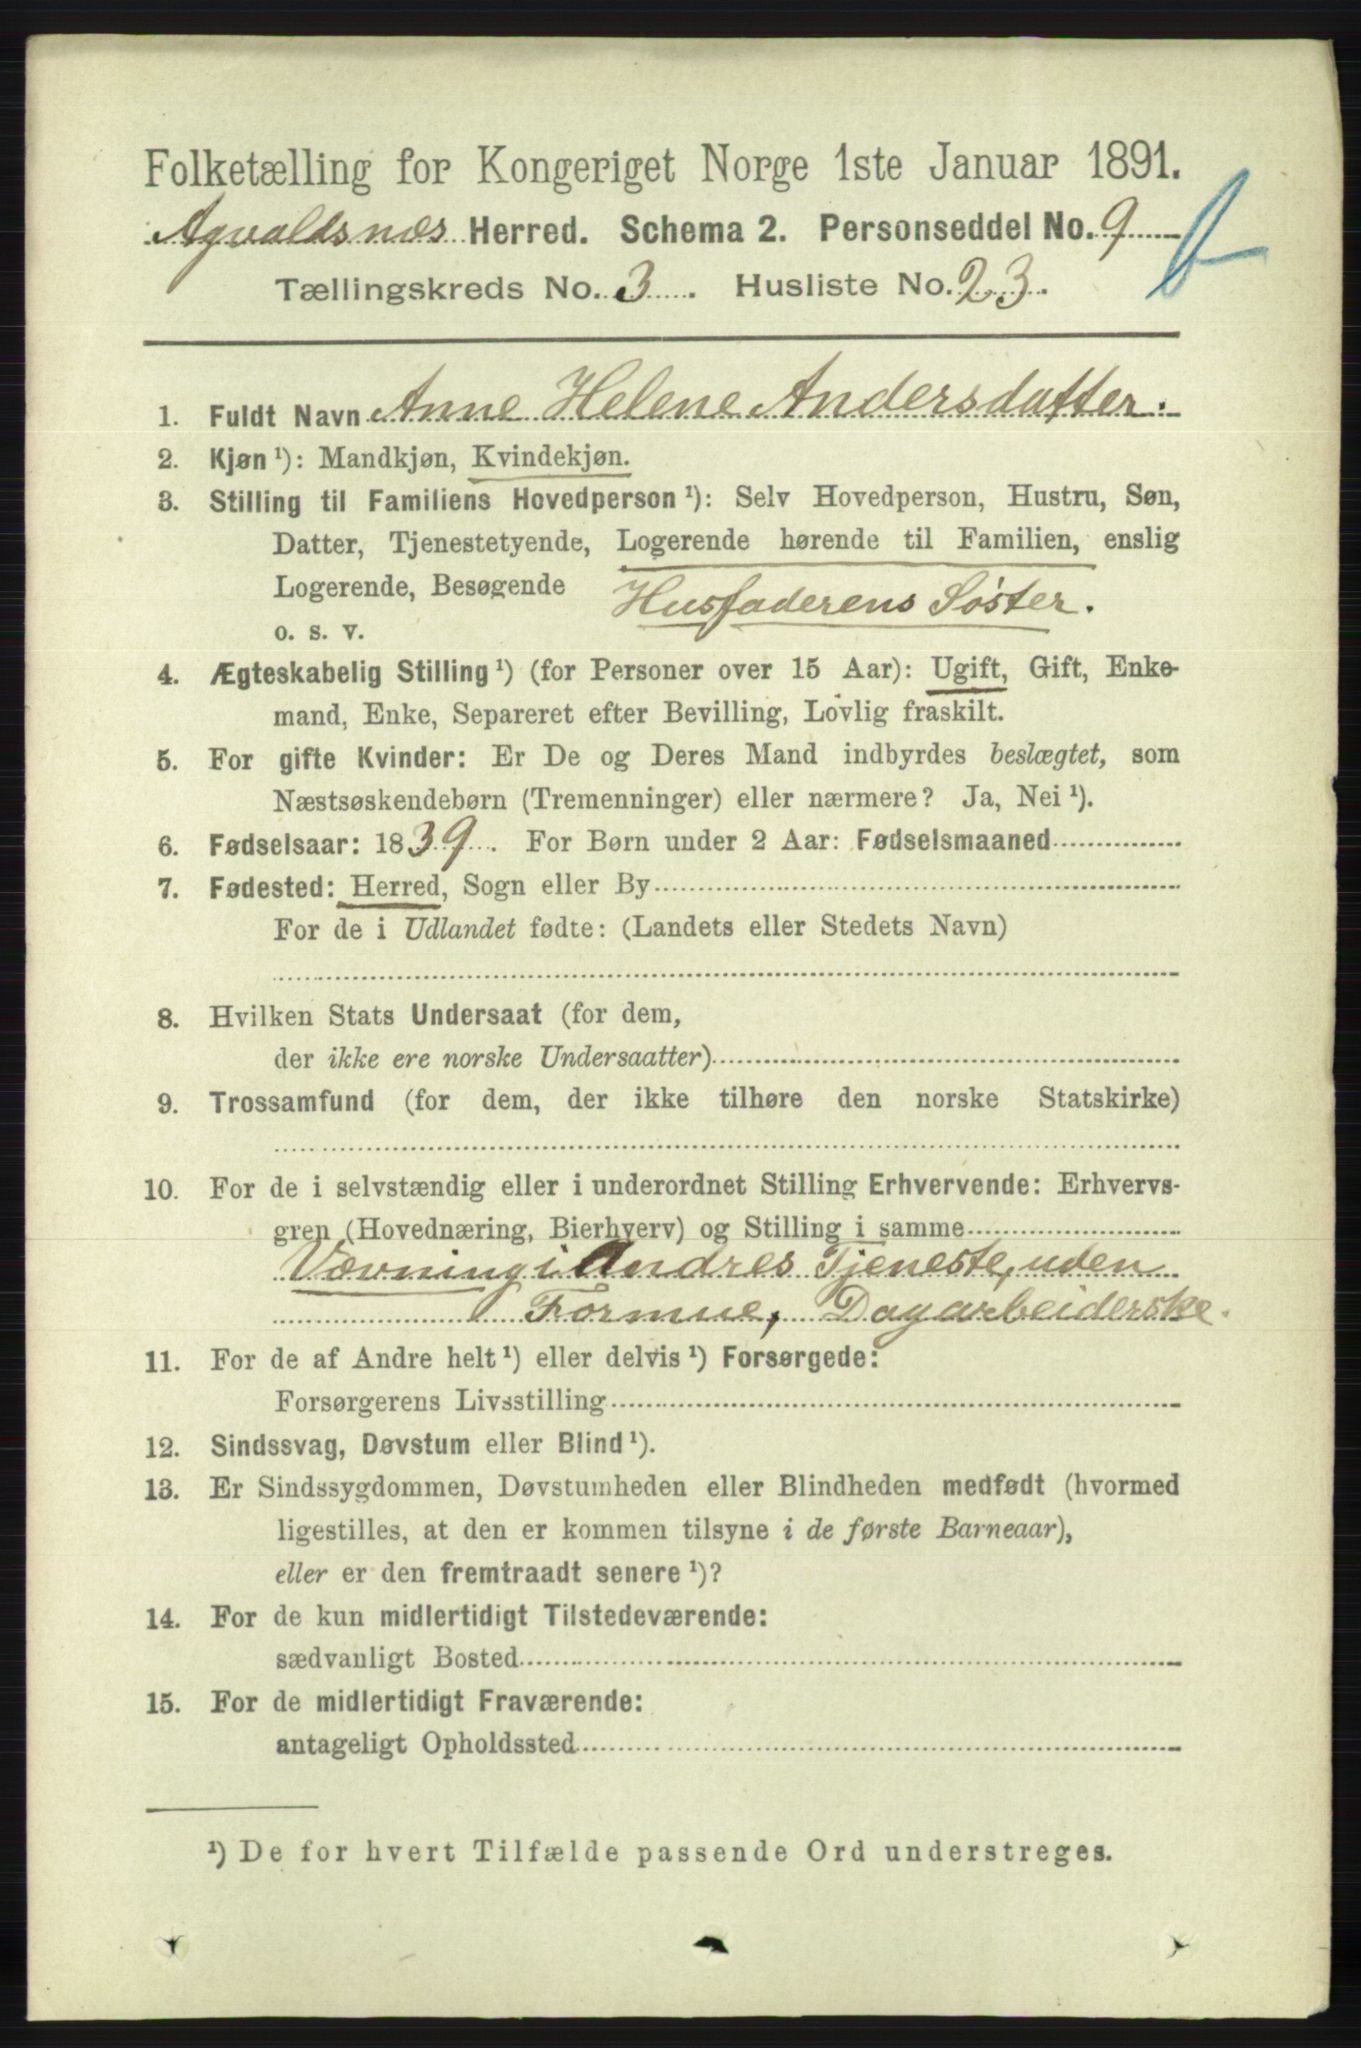 Folketælling for Kongeriget Norge 1ste Januar 1891.
Agvaldsnæs Herred. Schema 2. Personseddel No. 9
Tællingskreds No. 3. Husliste No. 23.
1. Fuldt Navn Anne Helene Andersdatter.
2. Kjøn ¹): Mandkjøn, Kvindekjøn.
3. Stilling til Familiens Hovedperson ¹): Selv Hovedperson, Hustru, Søn,
Datter, Tjenestetyende, Logerende hørende til Familien, enslig
Logerende, Besøgende Husfaderens Söster.
o. s. v.
4. Ægteskabelig Stilling ¹) (for Personer over 15 Aar): Ugift, Gift, Enke-
mand, Enke, Separeret efter Bevilling, Lovlig fraskilt.
5. For gifte Kvinder: Er De og Deres Mand indbyrdes beslægtet, som
Næstsøskendebørn (Tremenninger) eller nærmere? Ja, Nei ¹).
6. Fødselsaar: 1839. For Børn under 2 Aar: Fødselsmaaned
7. Fødested: Herred, Sogn eller By
For de i Udlandet fødte: (Landets eller Stedets Navn)
8. Hvilken Stats Undersaat (for dem,
der ikke ere norske Undersaatter)
9. Trossamfund (for dem, der ikke tilhøre den norske Statskirke)
10. For de i selvstændig eller i underordnet Stilling Erhvervende: Erhvervs-
gren (Hovednæring, Bierhverv) og Stilling i samme
Vævning i Andres Tjeneste, uden
Formue, Dagarbeiderske.
11. For de af Andre helt ¹) eller delvis ¹) Forsørgede:
Forsørgerens Livsstilling
12. Sindssvag, Døvstum eller Blind ¹).
13. Er Sindssygdommen, Døvstumheden eller Blindheden medfødt (hvormed
ligestilles, at den er kommen tilsyne i de første Barneaar),
eller er den fremtraadt senere ¹)?
14. For de kun midlertidigt Tilstedeværende:
sædvanligt Bosted
15. For de midlertidigt Fraværende:
antageligt Opholdssted
¹) De for hvert Tilfælde passende Ord understreges.